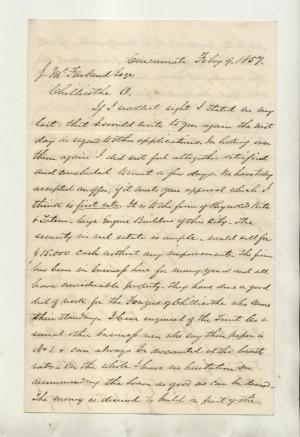 Cincinnati Feby 9, 1857.
J McFarland Esqr
Chillicothe O.
If I recollect right I stated in my
last that I would write to you again the next
day in regard to other applications. In looking over
them again I did not feel altogether satisfied
and concluded to wait a few days. I have to day
accepted an offer, if it meet your approval which I
think is first rate. It is to the firm of Reynolds Kite
& Tatum - large Engine Builders of this City - The
security in real estate is ample - would sell for
$15,000 cash without any improvements. The firm
has been in business here for many years and all
have considerable property. They have done a good
deal of work for the of Chillicothe who knows
their standing. I have enquired of the Trust Co &
several other business men who say their paper is
No 1. & can always be discounted at the lowest
rates - On the whole I have no hesitation in
recommending the loan as good as can be desired.
The money is desired to build on part of the